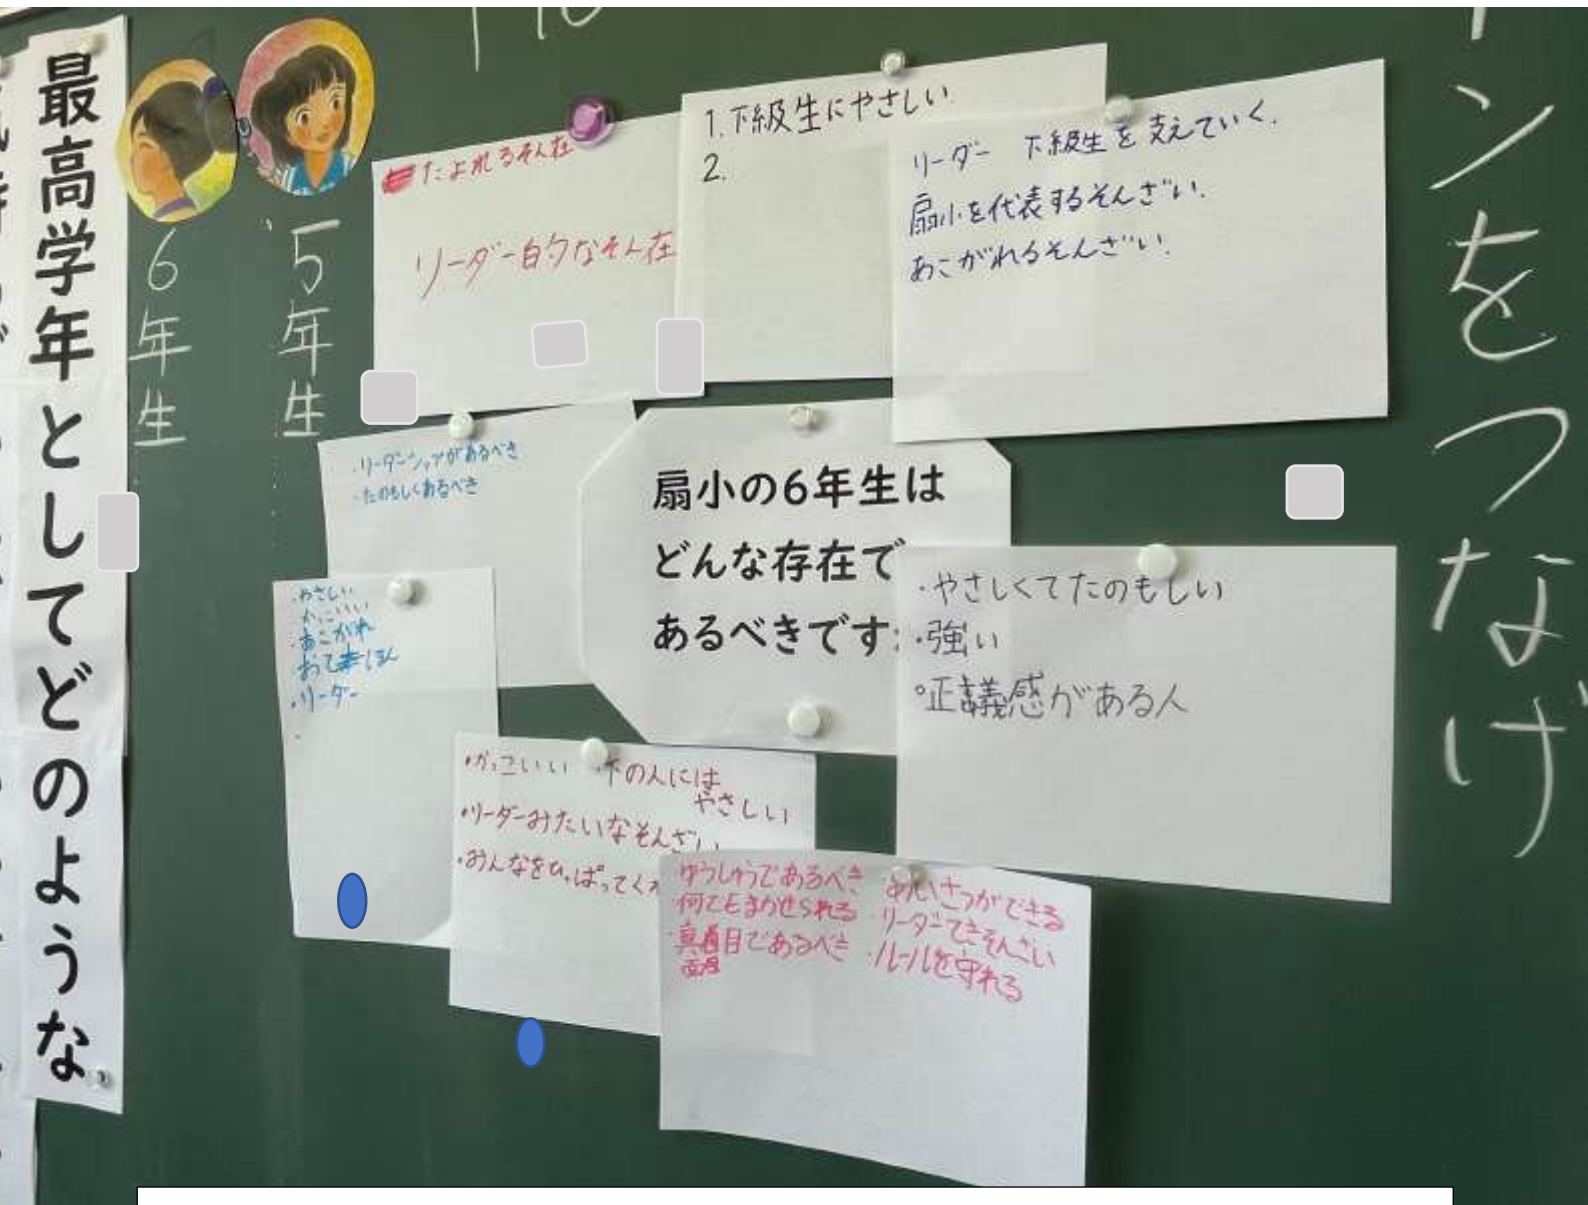 ンをつなげ
最高学年としてどのような
6年生
5年生
たよれるそん在
リーダー的なそん在
1.下級生にやさしい.
2.
リーダー 下級生を支えていく.
扇小を代表するそんざい.
あこがれるそんざい.
・リーダーシップがあるべき
・たのもしくあるべき
扇小の6年生は
どんな存在で
あるべきです
・やさしくてたのもしい
・強い
・正義感がある人
・やさしい
・かっこいい
・あこがれ
・おてほん
・リーダー
・かっこいい ・下の人には
やさしい
・リーダーみたいなそんざい
・みんなをひっぱってくれ
ゆうしゅうであるべき
何でもまかせられる
・真面目であるべき
あいさつができる
リーダーてきそんざい
・ルールを守れる